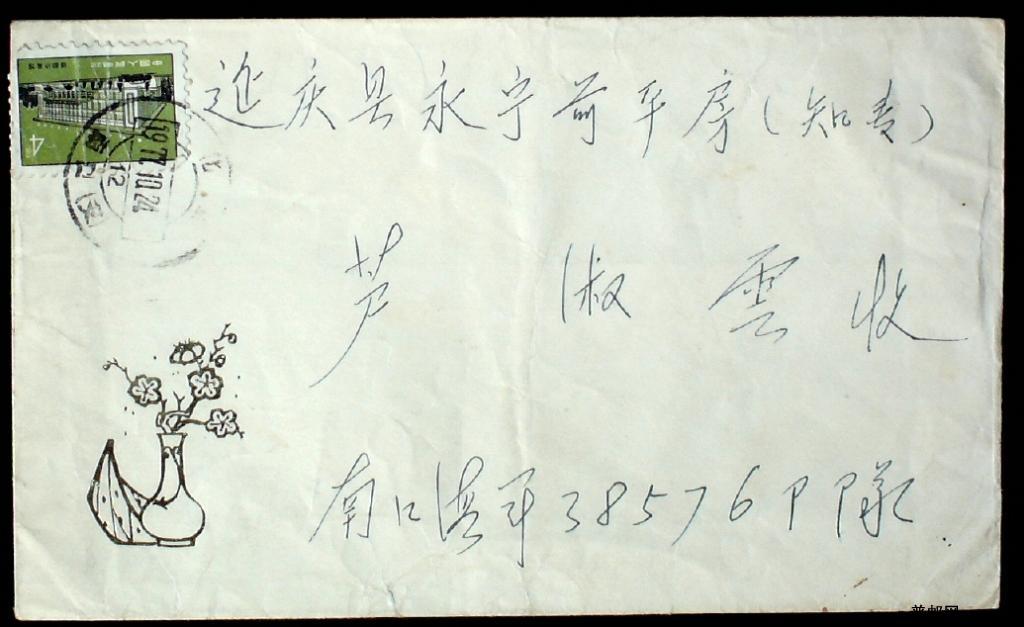 延庆县永宁前平房(知青)
芦淑雲收
南口满平38576部队
4
中国人民邮政
1977.10.24
12
普邮网